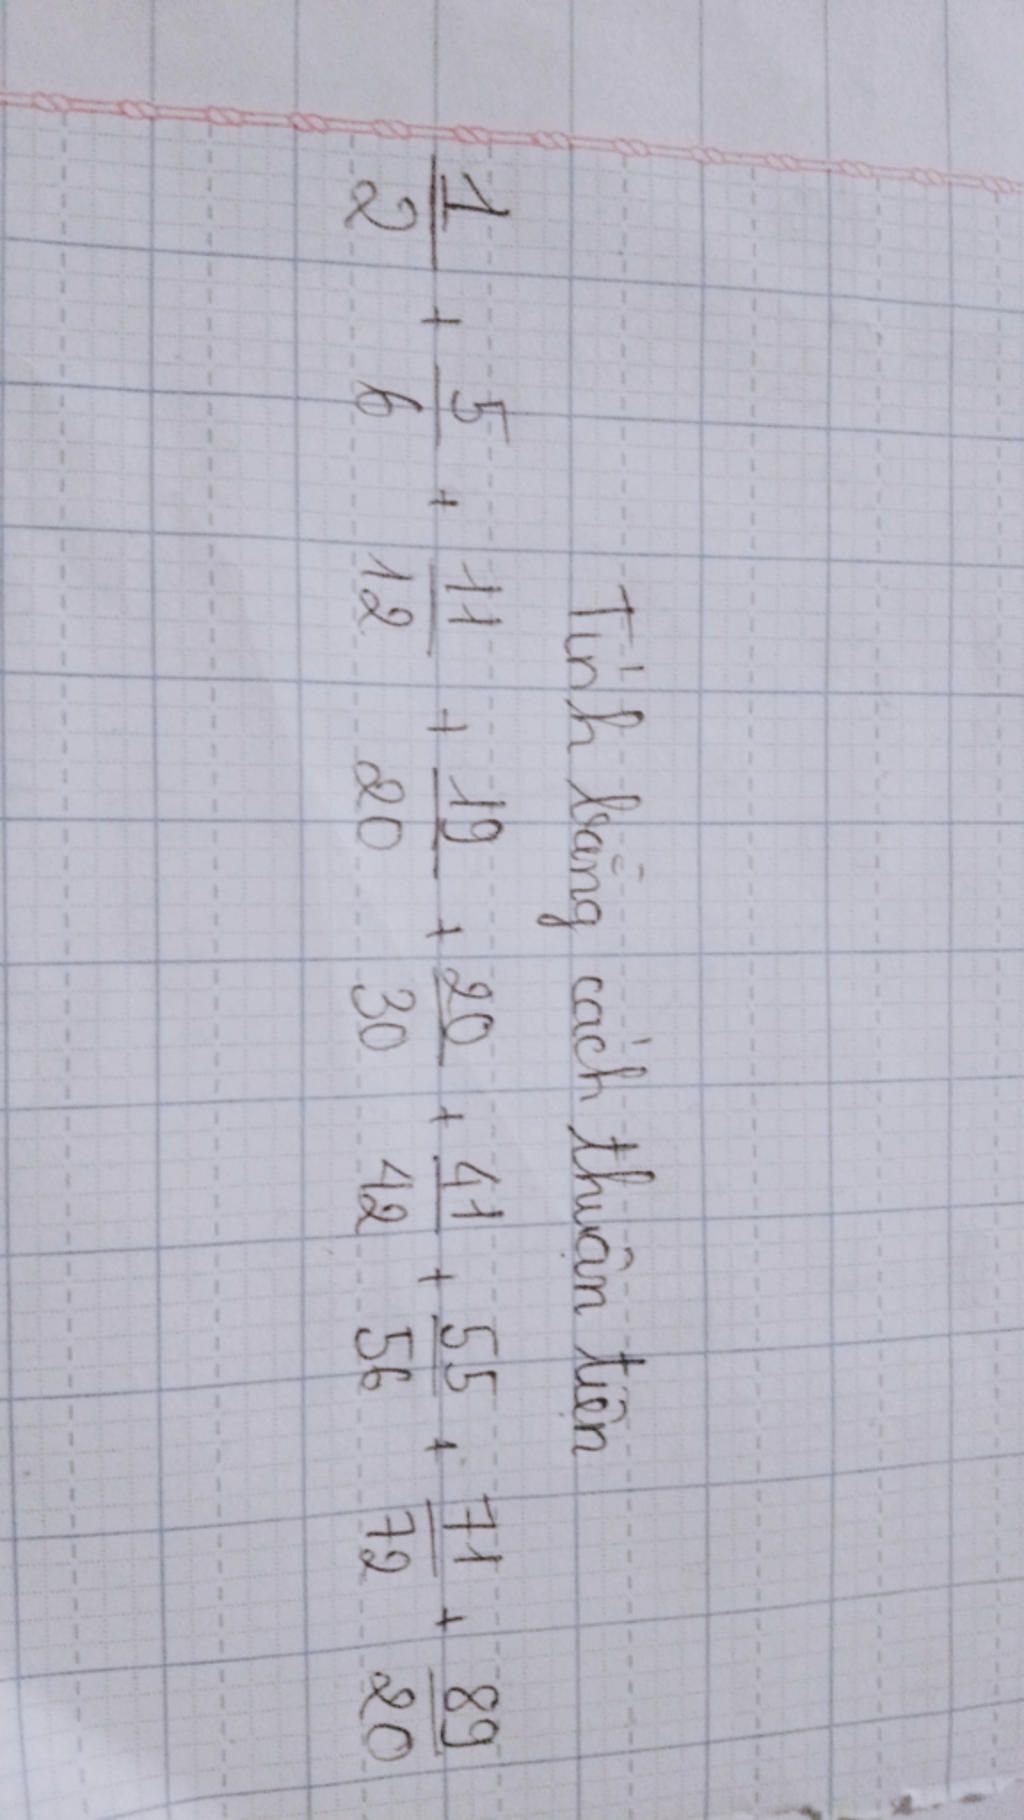 Tính bằng cách thuận tiện
1/2 + 5/6 + 11/12 + 19/20 + 20/30 + 41/42 + 55/56 + 71/72 + 89/20